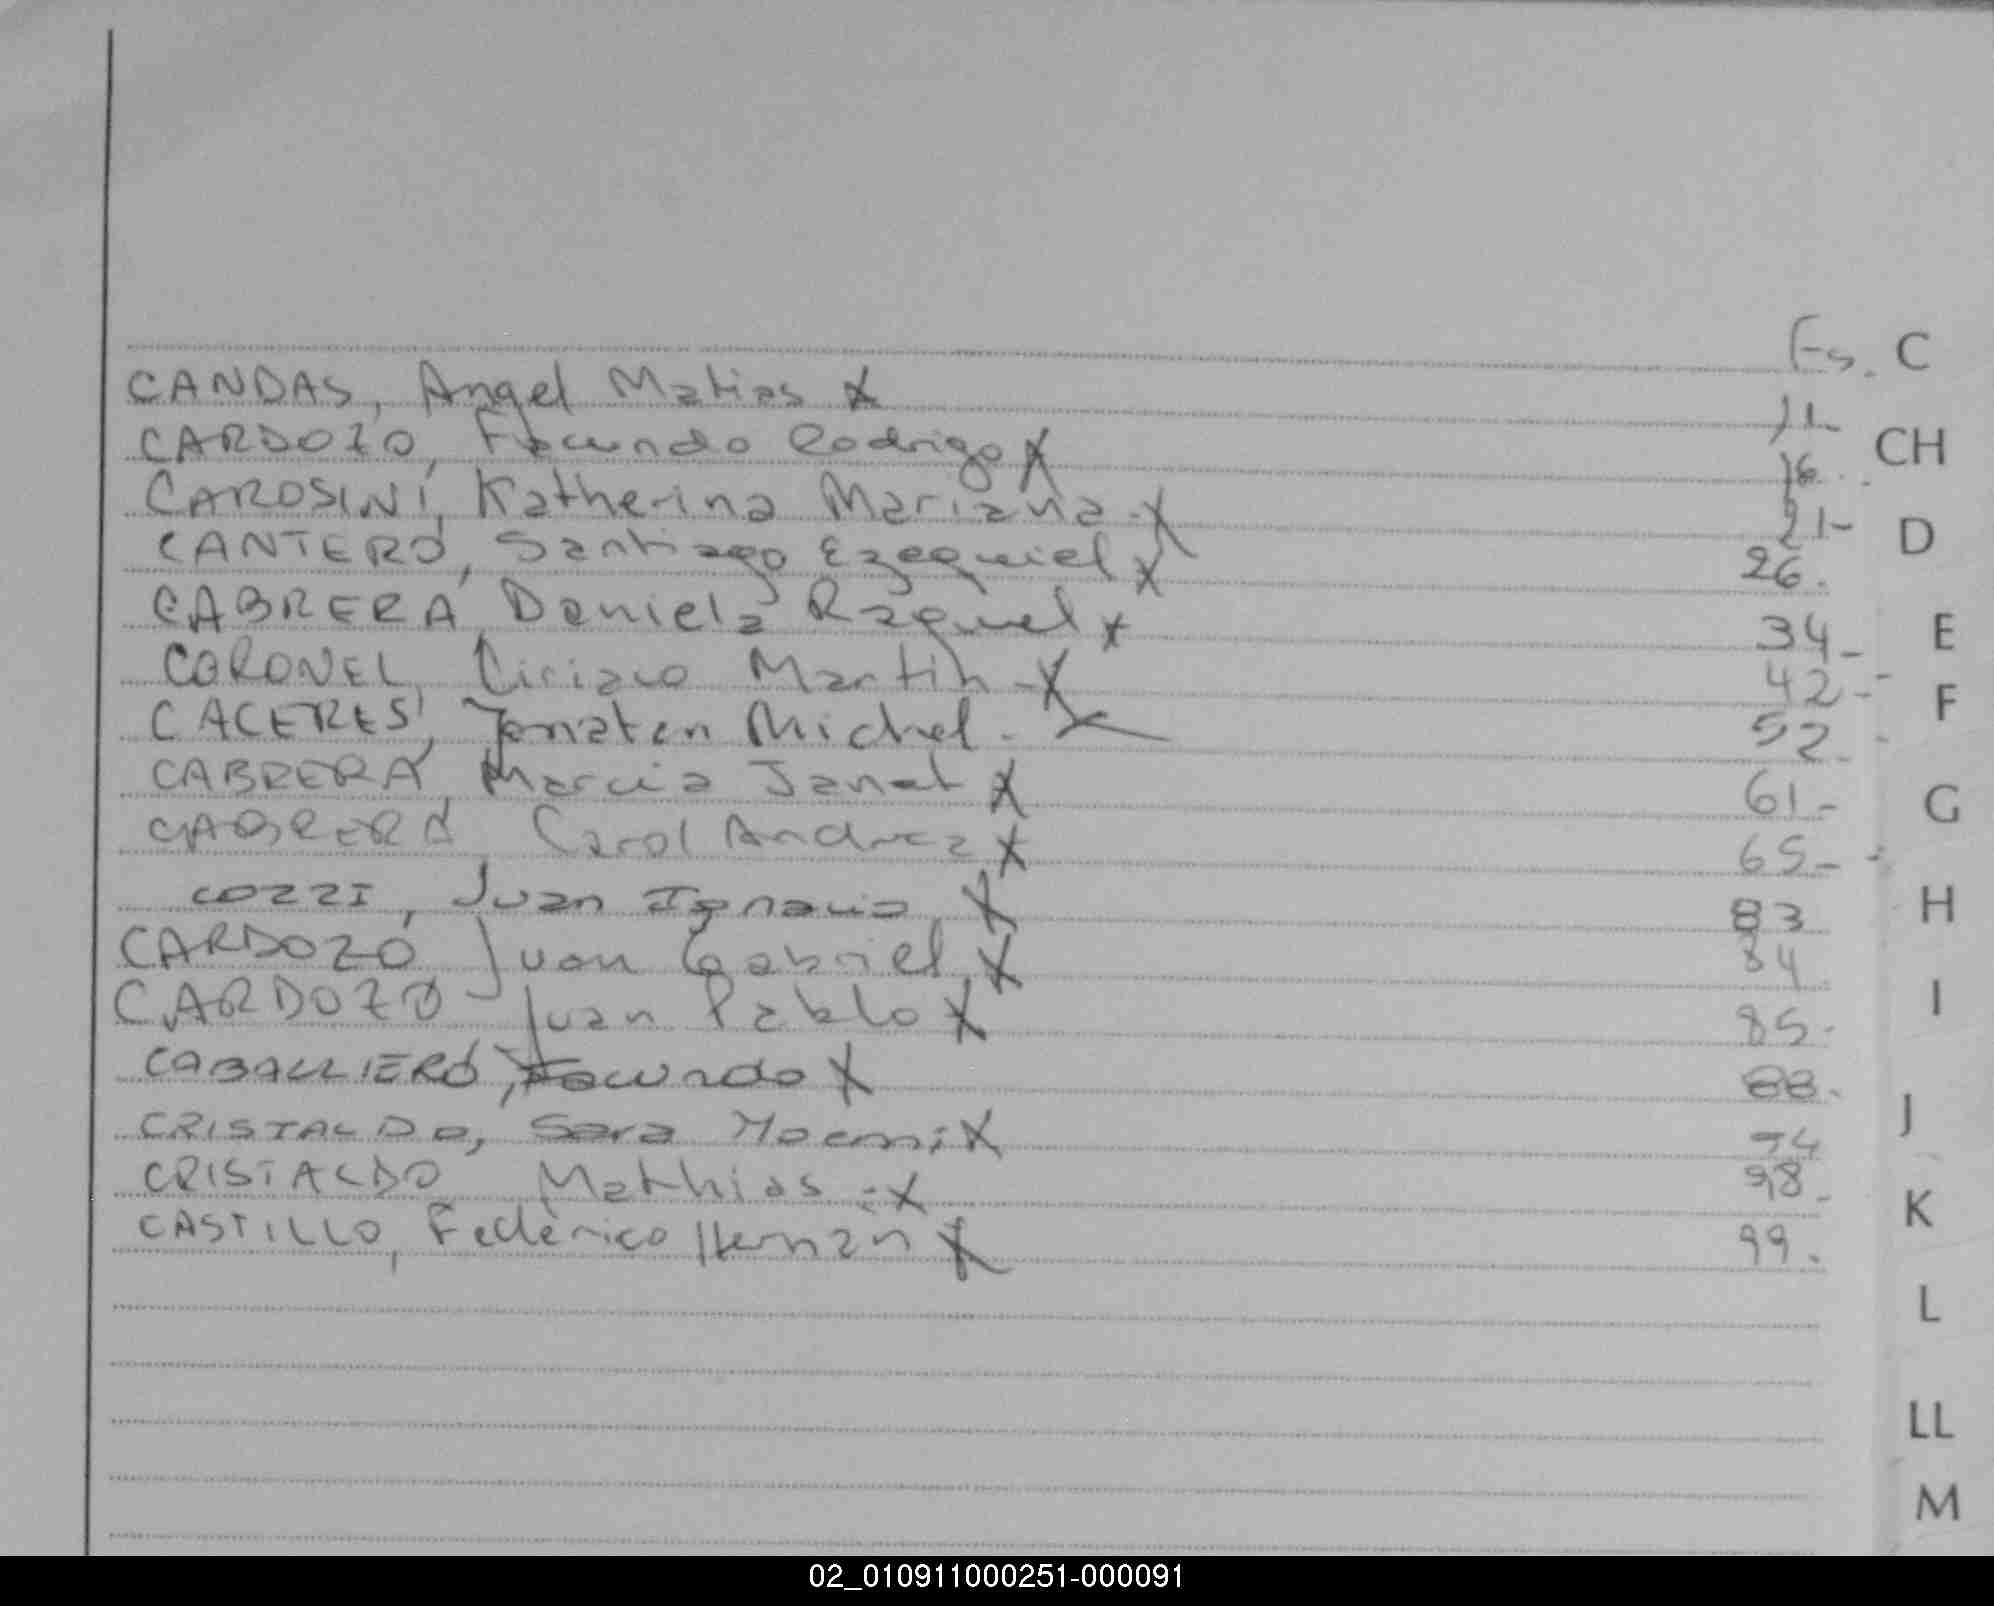 Fs. C
CANDAS, Angel Matias X 11-
CARDOZO, Facundo Rodrigo X 16. CH
CAROSINI, Katherina Mariana - X 21-
CANTERO, Santiago Ezequiel X 26. D
CABRERA, Daniela Raquel X 34- E
CORONEL, Ciriaco Martin - X 42-
CACERES, Jonatan Michel - X 52- F
CABRERA, Marcia Janet X 61- G
CABRERA, Carol Andrea X 65-
COZZI, Juan Ignacio X 83 H
CARDOZO, Juan Gabriel X 84
CARDOZO Juan Pablo X 85- I
CABALLIERO, Facundo X 88-
CRISTALDO, Sara X J
CRISTALDO Mathias - X 98- K
CASTILLO, Federico Hernán X 99.
L
LL
M
02_010911000251-000091